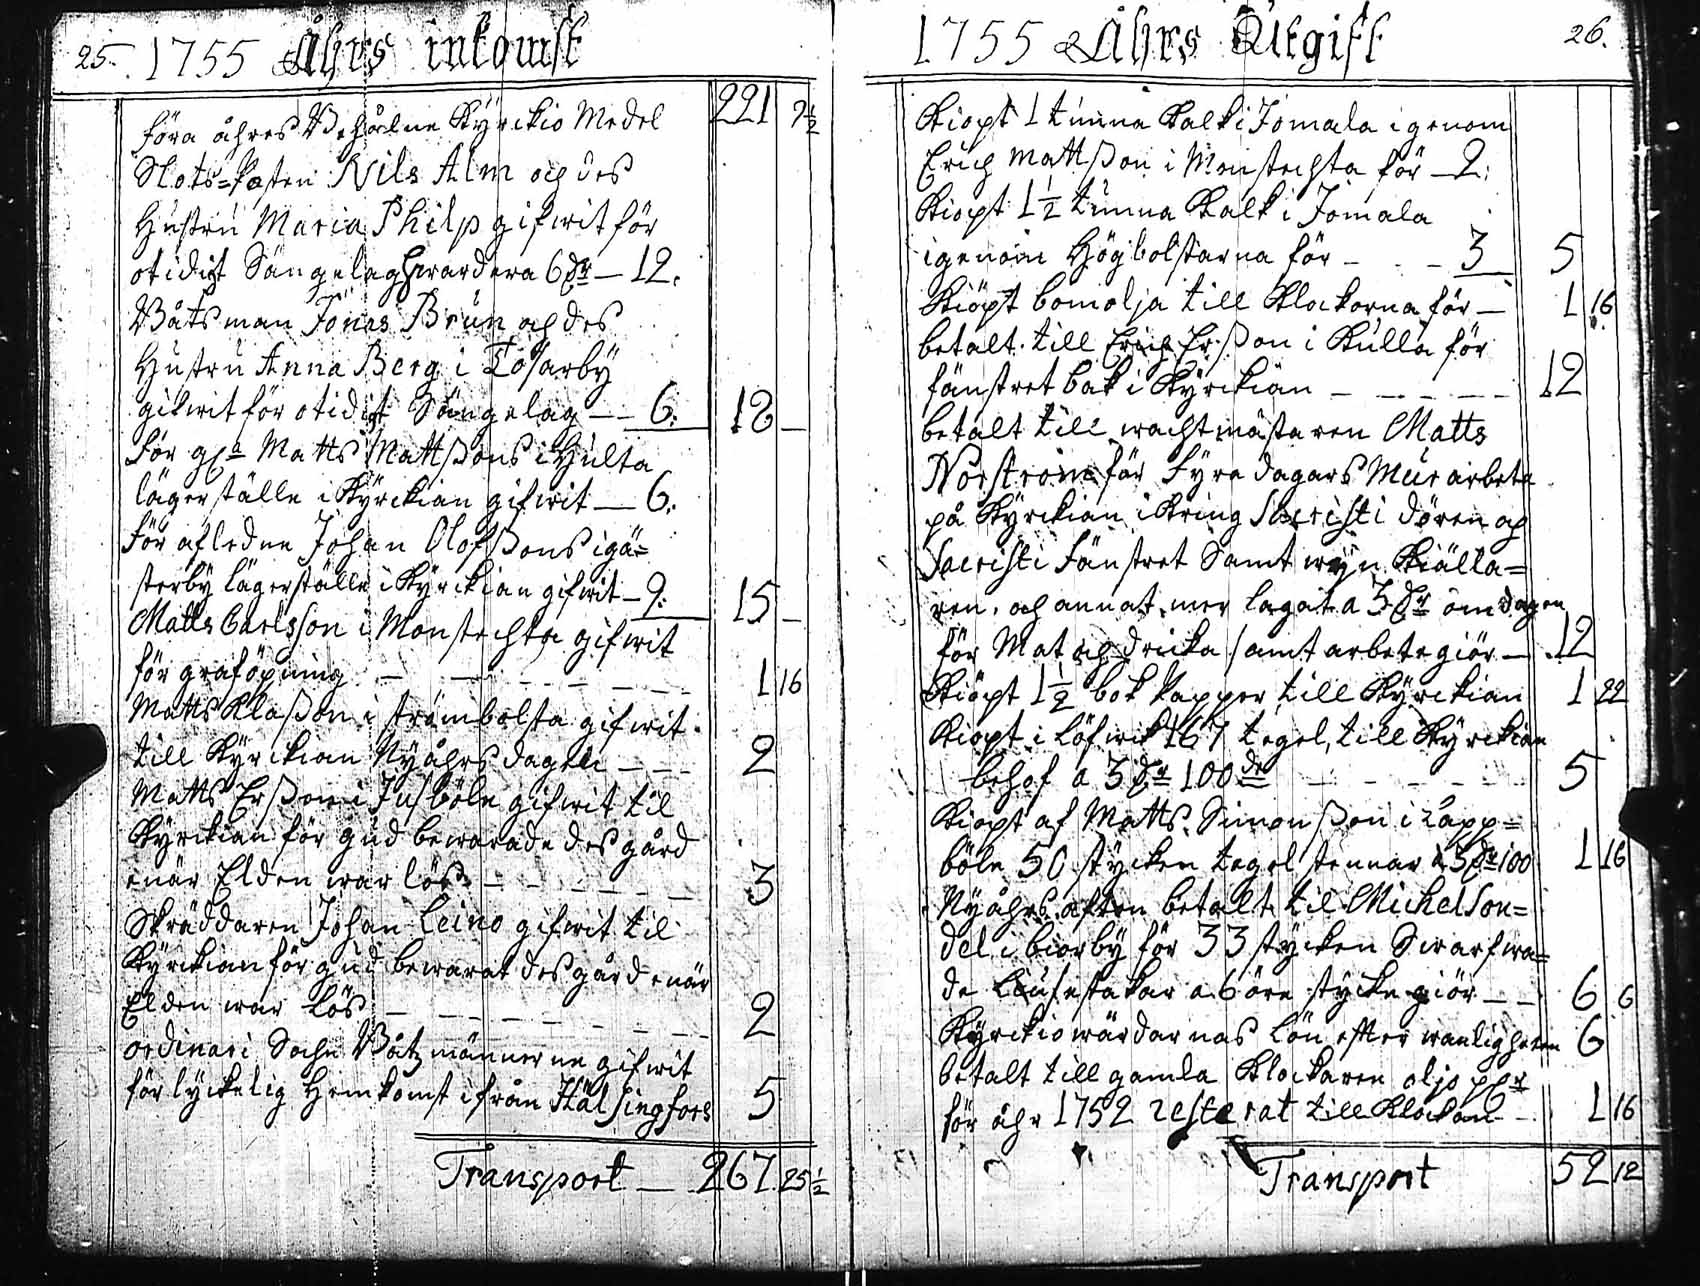 25. 1755 Åhrs inkomst
föra åhres Behålne Kÿrckio Medel 221 9½
Slots=kasten Nils Alm och des
Hustru Maria Philp gifwit för
otidigt Sängelag hwardera 6 dr — 12.
Båtsman Jonas Brun och des
Hustru Anna Berg i Tosarbÿ
gifwit för otidigt Sängelag — 6: 18 —
För Matts Mattssons i Hulta
lägerställe i Kÿrckian gifwit — 6:
För afledne Johan Olofssons i gä=
sterbÿ lägerställe i Kÿrckian gifwit — 9: 15 —
Matts Carlsson i Monstechta gifwit
för graföpning 1 16
Matts Klasson i strömbolsta gifwit
till Kÿrckian Nÿåhrs dagen 2
Matts Ersson i Jusböle gifwit til
Kÿrckian för gud bewarade des gård
enär Elden war lös 3
Skräddaren Johan Leino gifwit til
Kÿrckian för gud bewarat des gård enär
Elden war lös 2
ordinari Sochn Båtzmännerne gifwit
för lÿckelig Hemkomst ifrån Hälsingfors 5
Transport — 267 25½
1755 Åhrs Utgift 26.
Kiöpt 1 tunna Kalk i Jomala igenom
Erich Mattsson i Monstechta för — 2:
Kiöpt 1½ tunna Kalk i Jomala
igenom Högbolstarna för - - - 3 5
Kiöpt bomolja till Klockorna för — 1 16
betalt till Erich Ersson i Kulla för
fänstret bak i Kÿrckian 12
betalt till wachtmästaren Matts
Norström för fÿra dagars Mur arbete
på Kÿrckian ikring Sacristi dören och
Sacristi fänstret Samt wÿn Kiälla=
ren, och annat mer lagat a 3 dr om dagen
för Mat och dricka samt arbete giör — 12
Kiöpt 1½ bok papper till Kÿrckian 1 22
Kiöpt i Löfwik 167 tegel, till Kÿrckian
behof a 3 dr 100 de 5
Kiöpt af Matts Simonsson i Läpp=
böle 50 stÿcken tegel stennar a 3 dr 100 1 16
Nÿåhrs afton betalt til Michel Son=
del i biorbÿ för 33 stÿcken Swarfwa=
de Liusestakar a 6 öre stÿcke giör — 6 6
Kÿrckiowärdarnas Lön efter wanligheten 6
betalt till gamla Klockaren oljo
för åhr 1752 resterat till Klockan 1 16
Transport 52 12